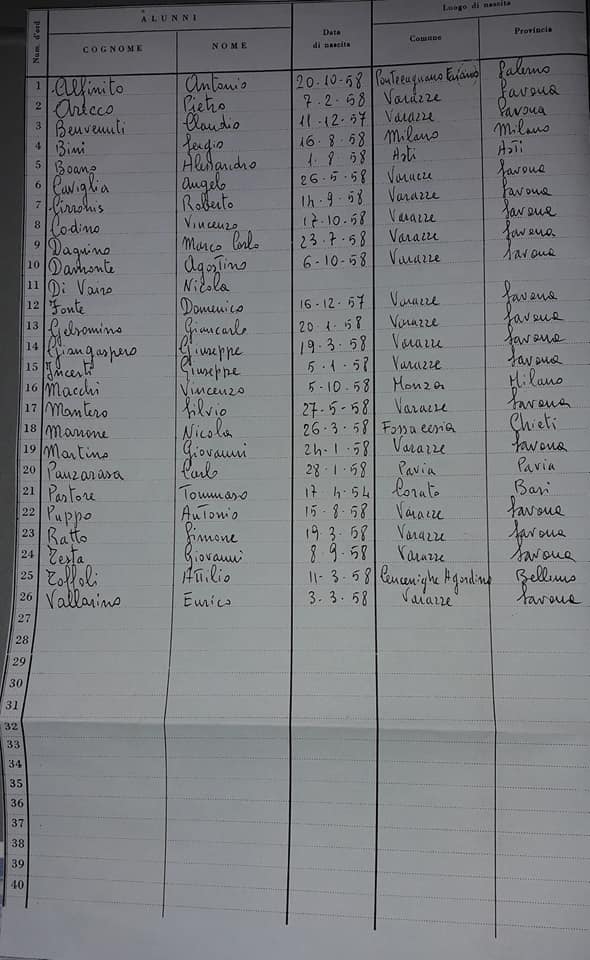 ALUNNI Luogo di nascita
Num. d'ord COGNOME NOME Data di nascita Comune Provincia
1 Alfinito Antonio 20-10-58 Pontecagnano Faiano Salerno
2 Arecco Pietro 7-2-58 Varazze Savona
3 Benvenuti Claudio 11-12-57 Varazze Savona
4 Bini Sergio 16-8-58 Milano Milano
5 Boano Alessandro 1-8-58 Asti Asti
6 Caviglia Angelo 26-5-58 Varazze Savona
7 Cirronis Roberto 14-9-58 Varazze Savona
8 Codino Vincenzo 17-10-58 Varazze Savona
9 Dagnino Marco Carlo 23-7-58 Varazze Savona
10 Damonte Agostino 6-10-58 Varazze Savona
11 Di Vairo Nicola
12 Fonte Domenico 16-12-57 Varazze Savona
13 Gelsomino Giancarlo 20-1-58 Varazze Savona
14 Giangaspero Giuseppe 19-3-58 Varazze Savona
15 Incerti Giuseppe 5-1-58 Varazze Savona
16 Macchi Vincenzo 5-10-58 Monza Milano
17 Mantero Silvio 27-5-58 Varazze Savona
18 Marrone Nicola 26-3-58 Fossacesia Chieti
19 Martino Giovanni 24-1-58 Varazze Savona
20 Panzarasa Carlo 28-1-58 Pavia Pavia
21 Pastore Tommaso 17 4-54 Corato Bari
22 Puppo Antonio 15-8-58 Varazze Savona
23 Ratto Simone 19-3-58 Varazze Savona
24 Testa Giovanni 8-9-58 Varazze Savona
25 Toffoli Attilio 11-3-58 Cencenighe Agordino Belluno
26 Vallarino Enrico 3-3-58 Varazze Savona
27
28
29
30
31
32
33
34
35
36
37
38
39
40